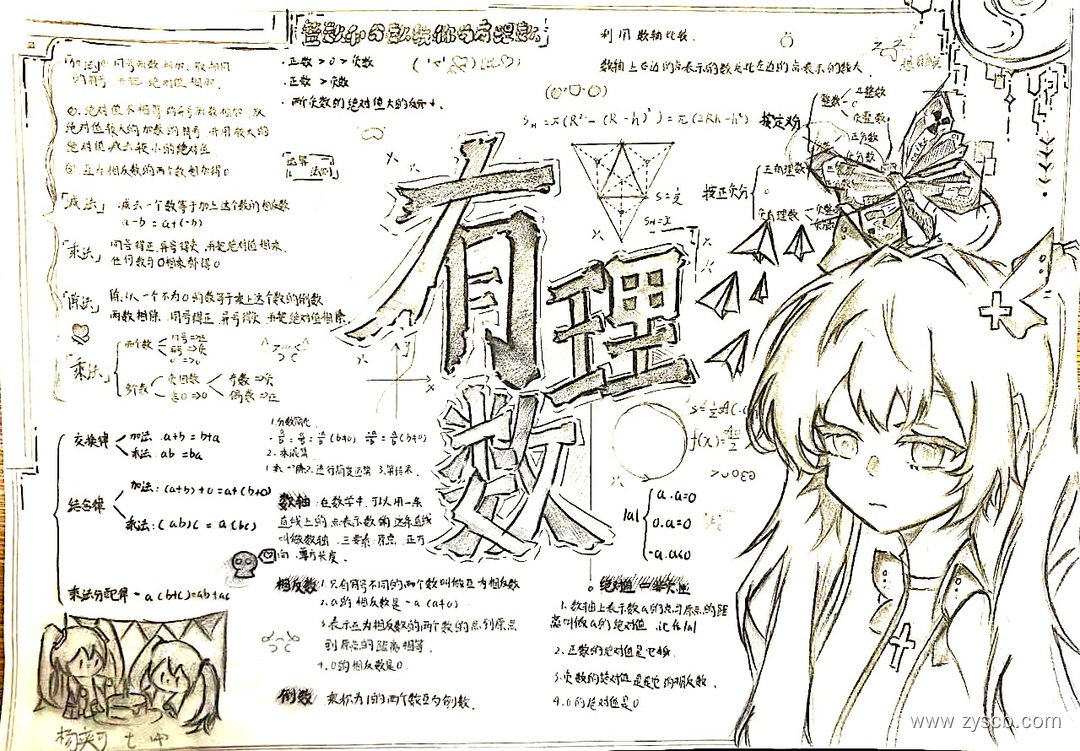 整数和分数统称为有理数
有理数
「加法」①同号两数相加，取相同
的符号，并把绝对值相加.
②.绝对值不相等的异号两数相加，取
绝对值较大的加数的符号，并用较大的
绝对值减去较小的绝对值
③ 互为相反数的两个数相加得0
「减法」.减去一个数等于加上这个数的相反数
a-b = a+(-b)
「乘法」同号得正，异号得负，并把绝对值相乘，
任何数与0相乘都得0
「除法」除以一个不为0的数等于乘上这个数的倒数
两数相除，同号得正，异号得负，并把绝对值相除
「乘法」
两个数
同号=>正
异号=>负
奇数=>负
偶数=>正
交换律
加法：a+b=b+a
乘法：ab=ba
结合律
加法：(a+b)+c=a+(b+c)
乘法：(ab)c = a(bc)
乘法分配律 = a(b+c)=ab+ac
·正数 > 0 > 负数
·正数 > 负数
·两个负数的绝对值大的反而小.
运算
法则
利用数轴比较.
数轴上右边的点表示的数总比左边的点表示的数大.
S = π(R²-(R-h)²) = π(2Rh-h²)
按定义分
整数
正整数
0
负整数
正分数
按正负分
正有理数
0
负有理数
数轴：在数学中，可以用一条
直线上的点表示数，这条直线
叫做数轴，三要素：原点，正方
向，单位长度.
相反数 1.只有符号不同的两个数叫做互为相反数
2.a的相反数是-a (a≠0)
3.表示互为相反数的两个数的点到原点
到原点的距离相等.
4.0的相反数是0.
倒数 乘积为1的两个数互为倒数.
|a|
a.a>0
0.a=0
-a.a<0
绝对值
1.数轴上表示数a的点与原点的距
离叫做a的绝对值，记作|a|
2.正数的绝对值是它本身
3.负数的绝对值是它的相反数.
4.0的绝对值是0
www.zyscb.com